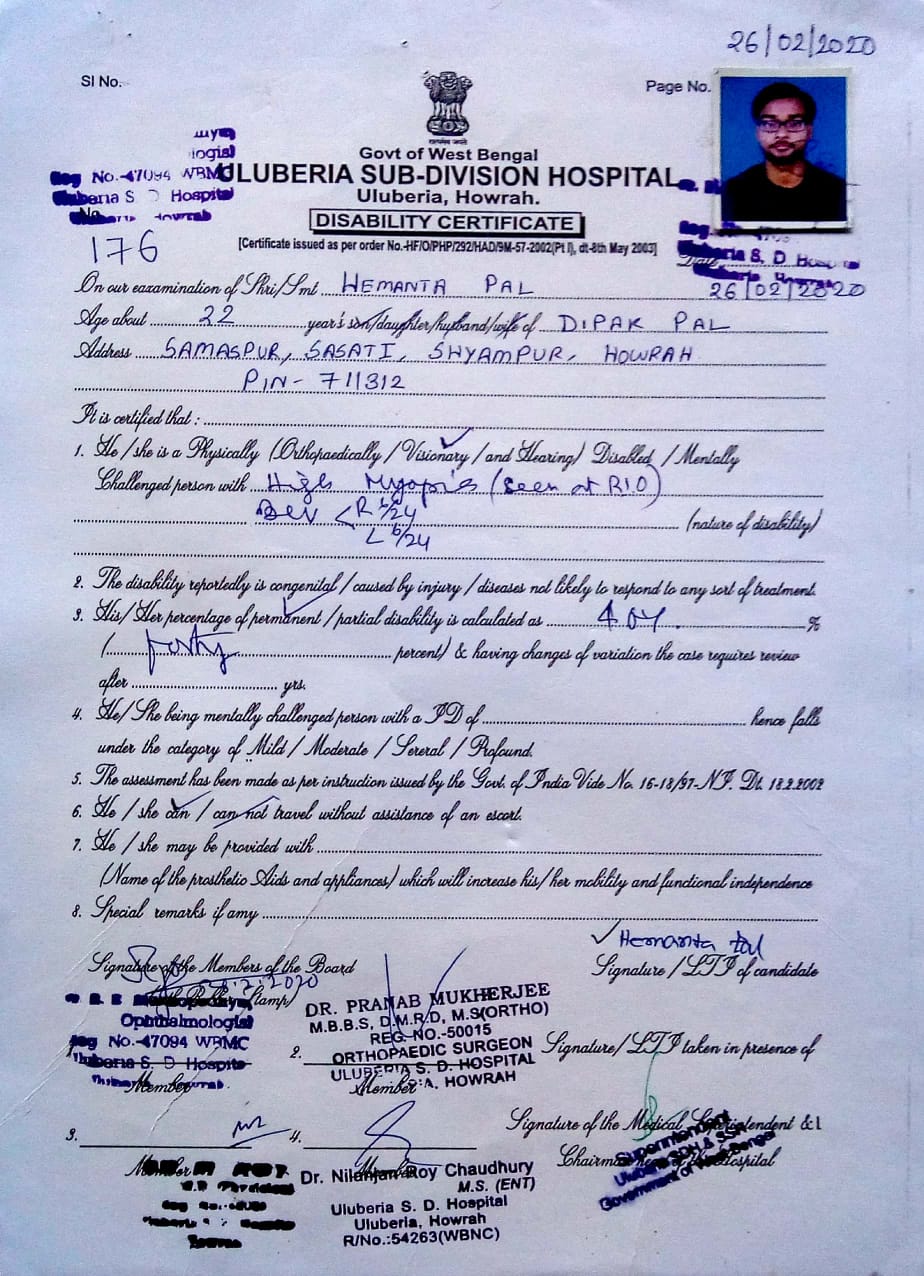 26/02/2020
Sl No.
Page No.
सत्यमेव जयते
Govt of West Bengal
ULUBERIA SUB-DIVISION HOSPITAL
Uluberia, Howrah.
DISABILITY CERTIFICATE
[Certificate issued as per order No.-HF/O/PHP/292/HAD/9M-57-2002(Pt I), dt-8th May 2003]
Reg No.-47094 WBMC
Uluberia S. D Hospital
No.
176
Uluberia S. D Hospital
Uluberia Howrah
Date
26/02/2020
On our eaxamination of Shri/Smt HEMANTA PAL
Age about 22 year's son/daughter/husband/wife of DIPAK PAL
Address SAMASPUR, SASATI, SHYAMPUR, HOWRAH
PIN- 711312
It is certified that :
1. He / she is a Physically (Orthopaedically / Visionary / and Hearing) Disabled / Mentally
Challenged person with High Myopia (Seen at RIO)
BEV < R 6/24
L 6/24
(nature of disability)
2. The disability reportedly is congenital / caused by injury / diseases not likely to respond to any sort of treatment.
3. His/ Her percentage of permanent / partial disability is calculated as 40%. %
(forty percent) & having changes of variation the case requires review
after yrs.
4. He/ She being mentally challenged person with a ID of hence falls
under the category of Mild / Moderate / Sereral / Profound.
5. The assessment has been made as per instruction issued by the Govt. of India Vide No. 16-18/97-NI. Dt. 18.2.2002
6. He / she can / can not travel without assistance of an escort.
7. He / she may be provided with
(Name of the prosthetic Aids and appliances) which will increase his/ her mobility and functional independence
8. Special remarks if amy
Hemanta Pal
Signature of the Members of the Board
Signature / LTI of candidate
Stamp)
Ophthalmologist
Reg No.-47094 WBMC
Uluberia S. D Hospital
1.
Member
DR. PRANAB MUKHERJEE
M.B.B.S, D.M.R.D, M.S(ORTHO)
REG. NO.-50015
2. ORTHOPAEDIC SURGEON
ULUBERIA S. D. HOSPITAL
Member HOWRAH
Signature/ LTI taken in presence of
Signature of the Medical Superintendent &
Chairman Hospital
Superintendent
Uluberia SDH & SSH
Government of West Bengal
3.
4.
Member
Member
Dr. Nilanjan Roy Chaudhury
M.S. (ENT)
Uluberia S. D. Hospital
Uluberia, Howrah
R/No.:54263(WBNC)